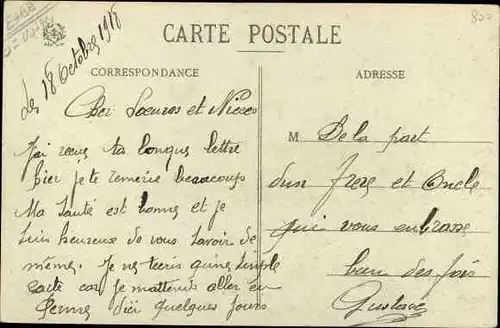 CARTE POSTALE
CORRESPONDANCE
ADRESSE
les 18 Octobre 1918
Cher Soeuros et Nieces
J'ai recus ta longus lettre
hier je te remerie beaucoups
Ma santé est bonne et je
suis heureuse de vous savoir de
même. Je ne t'ecris qu'une simple
carte car je m'attends aller en
Perme d'ici quelques jours
M De la part
d'un frere et Oncle
qui vous enbrasse
bien des fois
Gustave